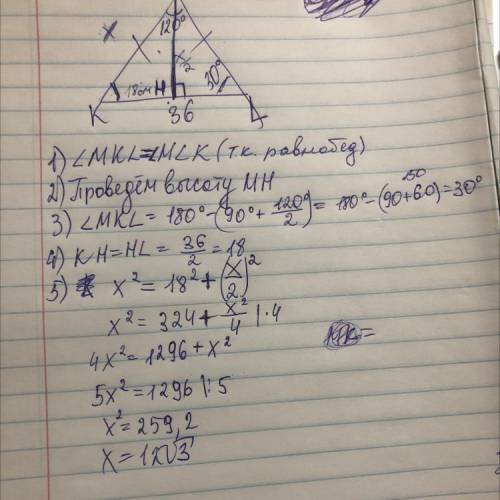 x
120°
x/2
30°
18см H
K 36 L
1) ∠MKL=∠MLK (т.к. равнобед)
2) Проведём высоту MH
3) ∠MKL = 180° - (90° + 120°/2) = 180° - (90+60) = 30°
150
4) KH = HL = 36/2 = 18
5) x² = 18² + (x/2)²
x² = 324 + x²/4 |·4
4x² = 1296 + x²
5x² = 1296 |:5
x² = 259,2
x = 12√3